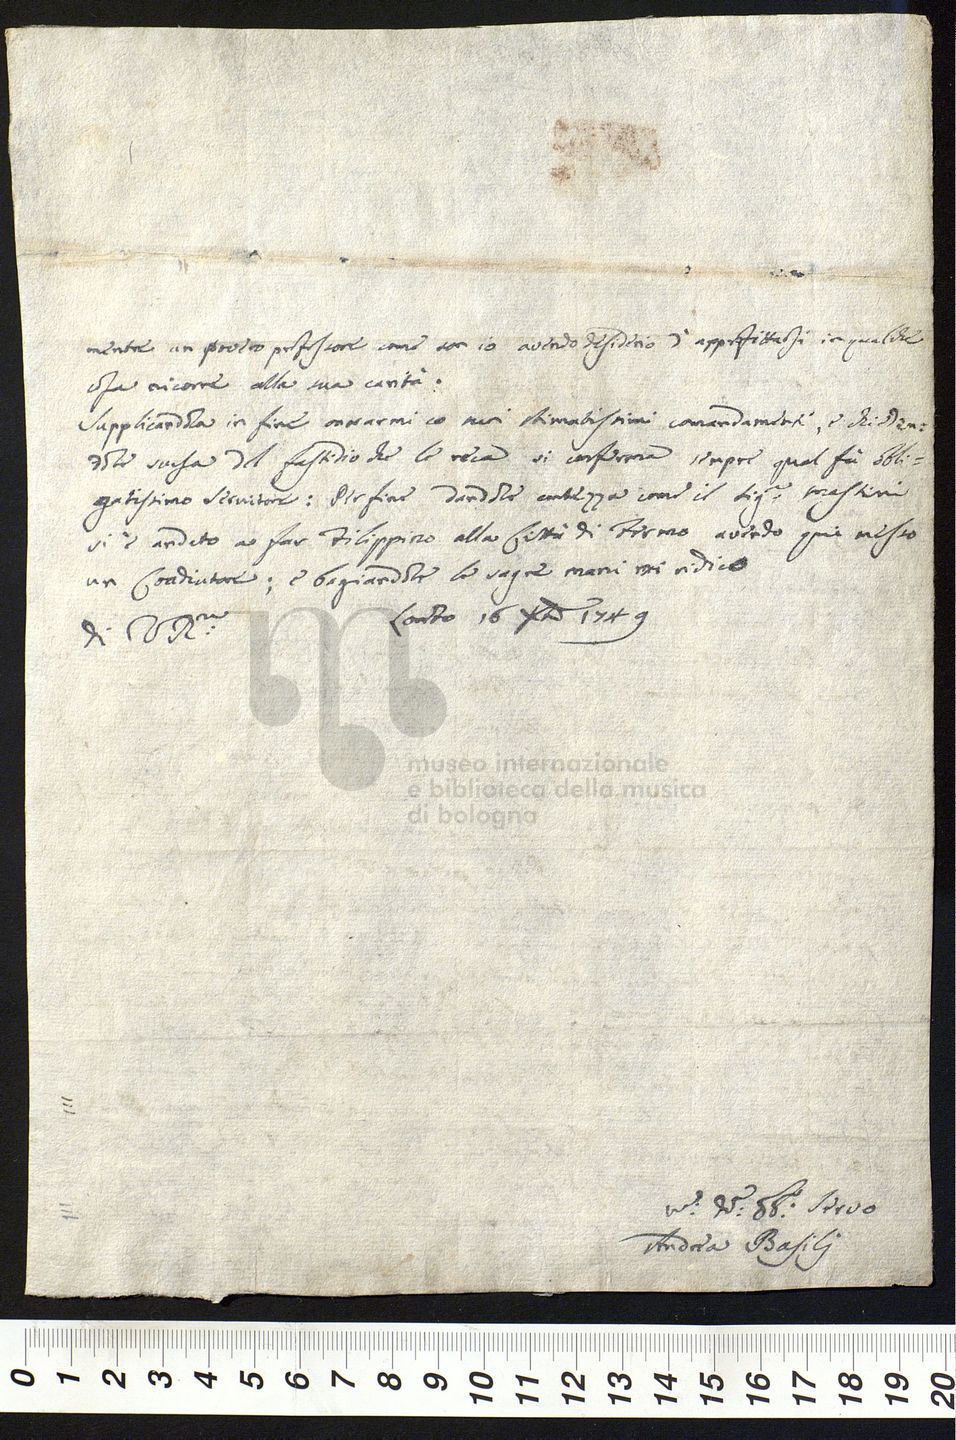 mentre un povero professore come son io avendo desiderio d'approfittarsi in qualche
cosa ricorre alla sua carità:
Supplicandola in fine onorarmi co suoi stimatissimi comandamenti, e chiedēn=
dole scusa del fastidio che le reca si conferma sempre qual fù obli=
gatissimo Servitore: Per fine dandole contezza come il Sig.r Mastini
si è andato a far Filippino alla Città di Fermo avendo qui messo
un Coadiutore; e bagiandole le sagre mani mi ridico
di V R.ma
Loreto 16 Xbre 1749
museo internazionale
e biblioteca della musica
di bologna
D.mo Obb.mo Servo
Andrea Basilj
0 1 2 3 4 5 6 7 8 9 10 11 12 13 14 15 16 17 18 19 20